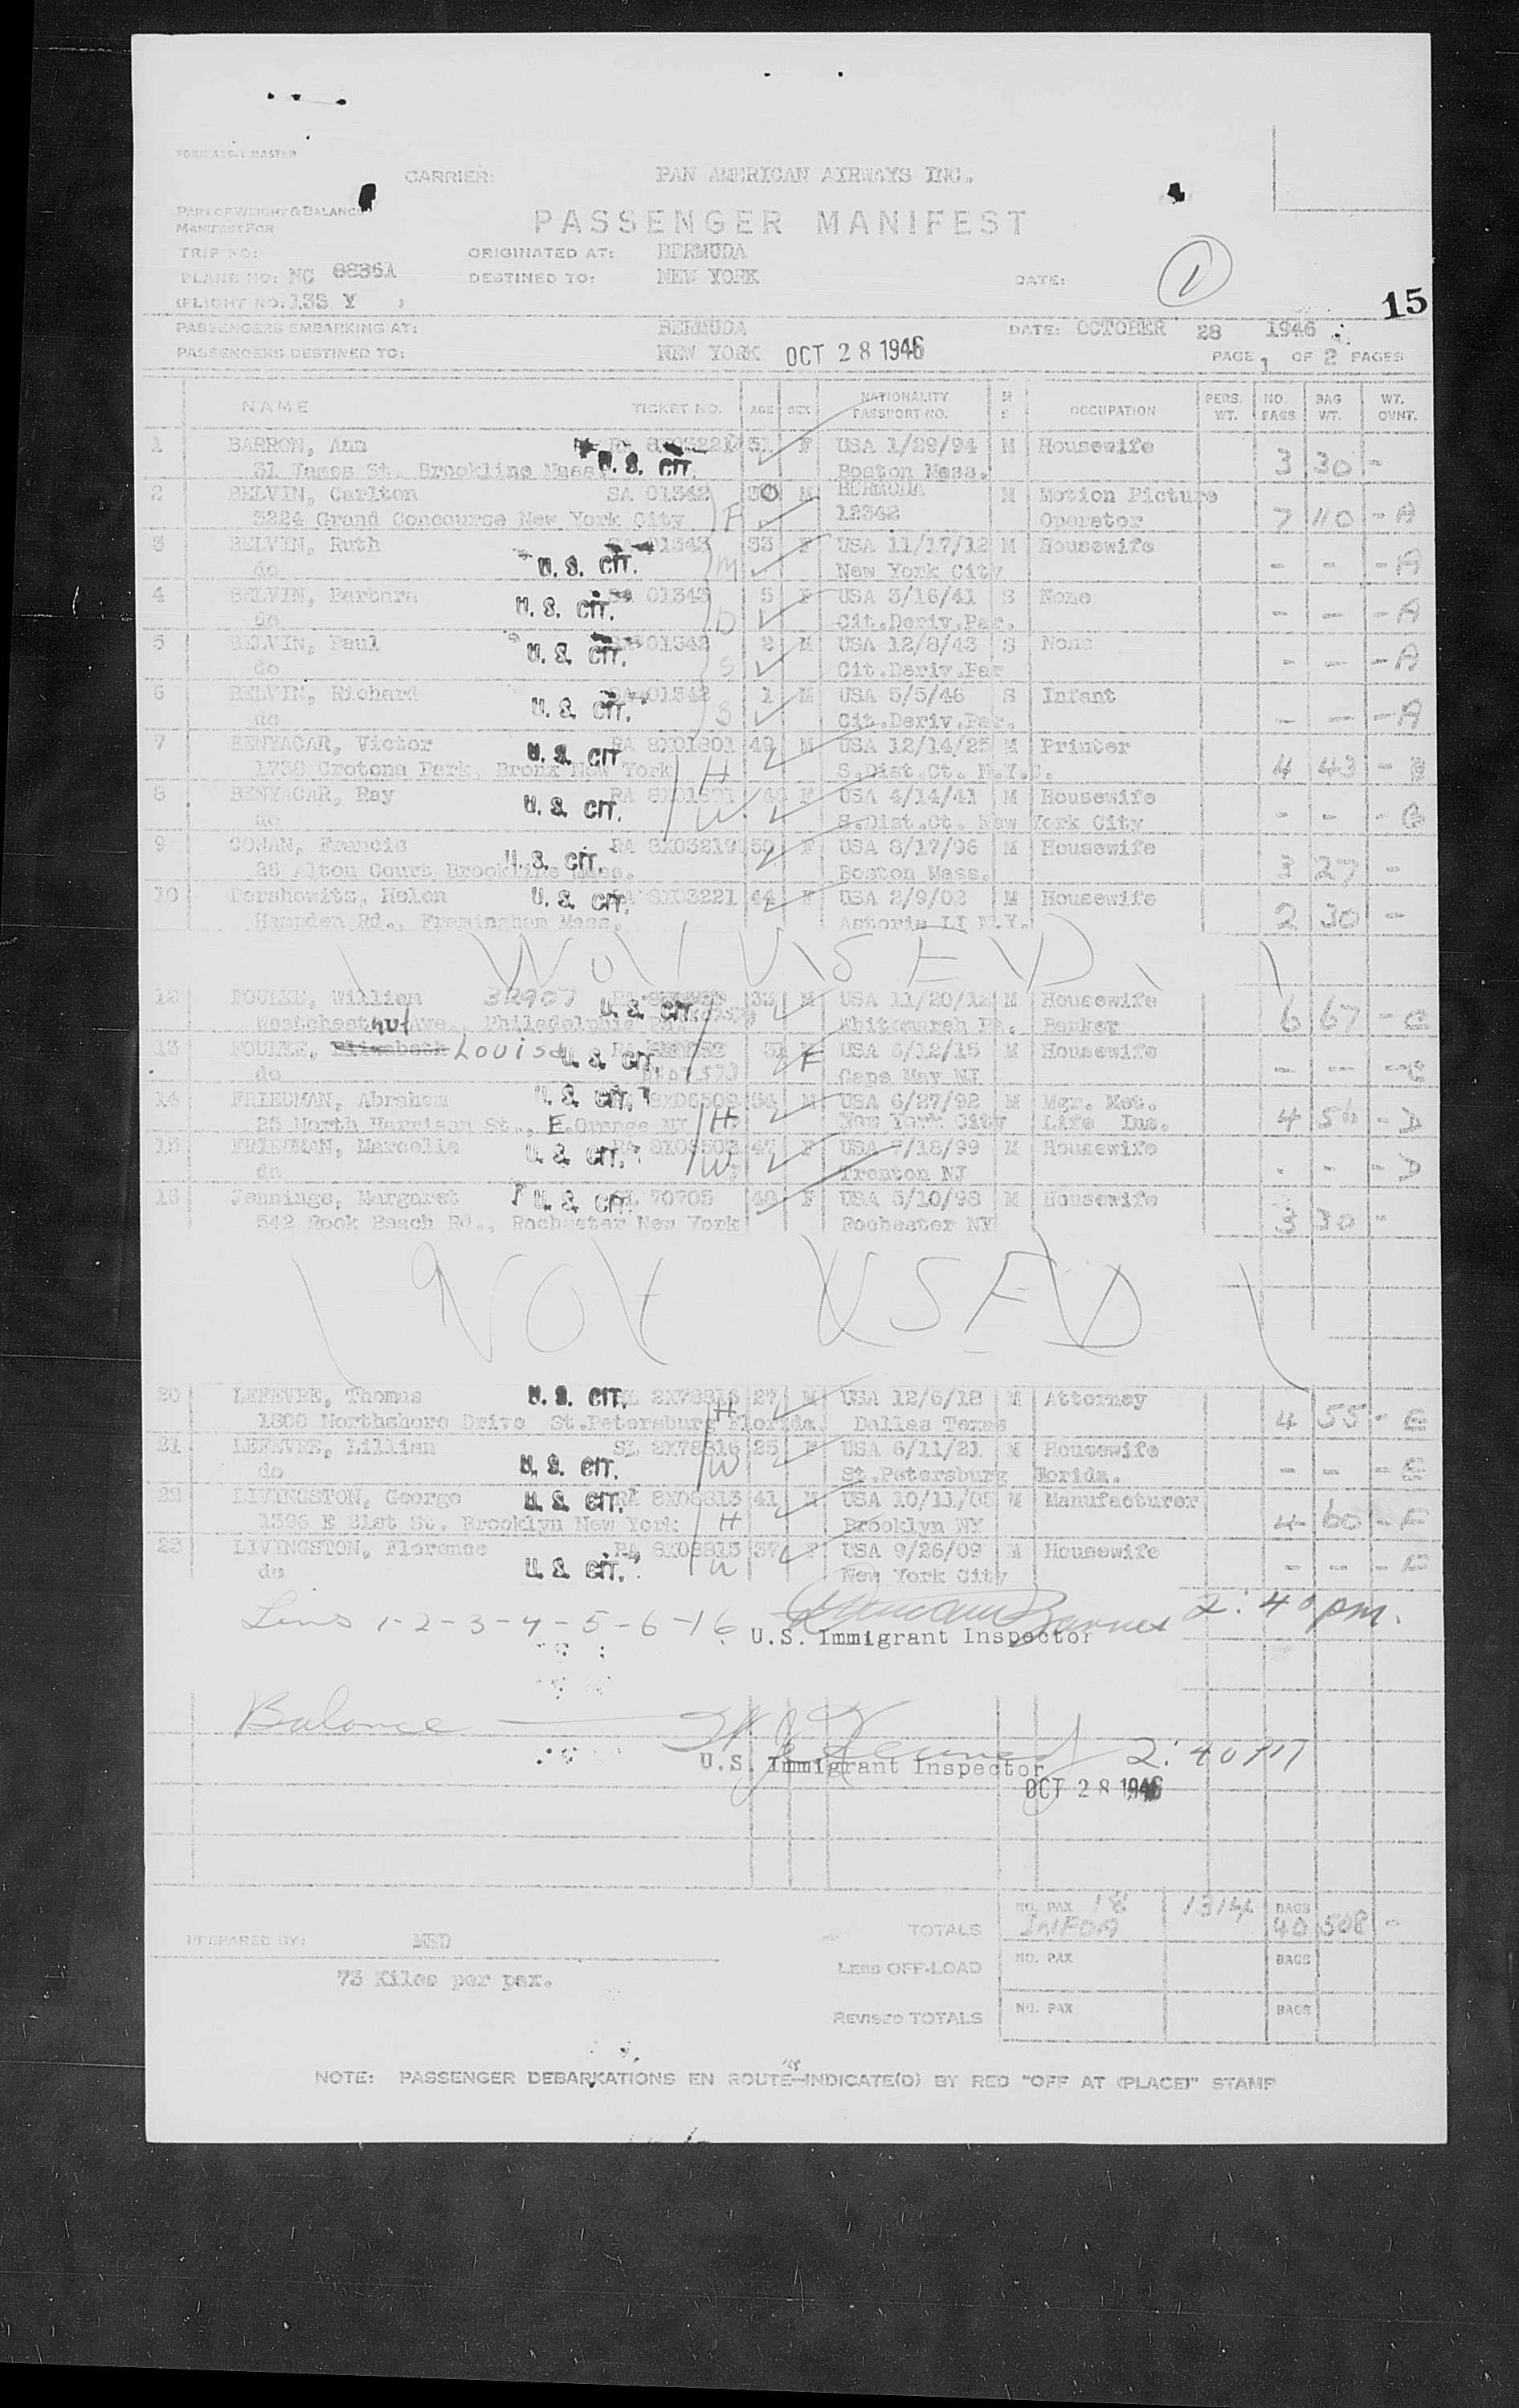 FORM ASC-1 MASTER
CARRIER: PAN AMERICAN AIRWAYS INC.
PART OF WEIGHT & BALANCE
MANIFEST FOR
PASSENGER MANIFEST
TRIP NO: ORIGINATED AT: BERMUDA
PLANE NO: NC 88861 DESTINED TO: NEW YORK DATE: 1
(FLIGHT NO. 138 Y )
15
PASSENGERS EMBARKING AT: BERMUDA DATE: OCTOBER 28 1946
PASSENGERS DESTINED TO: NEW YORK OCT 28 1946 PAGE 1 OF 2 PAGES
NAME TICKET NO. AGE SEX NATIONALITY PASSPORT NO. M S OCCUPATION PERS. WT. NO. BAGS BAG WT. WT. OVNT.
1 BARRON, Ann 51 F USA 1/29/94 M Housewife
31 James St. Brookline Mass. U. S. CIT. Boston Mass. 3 30 -
2 BELVIN, Carlton SA 01342 30 M BERMUDA M Motion Picture
3224 Grand Concourse New York City F 12342 Operator 7 110 - A
3 BELVIN, Ruth SA 01343 33 F USA 11/17/12 M Housewife
do U. S. CIT. M New York City - - - A
4 BELVIN, Barbara 01343 5 F USA 3/16/41 S None
do U. S. CIT. D Cit.Deriv.Par. - - - A
5 BELVIN, Paul 01342 2 M USA 12/8/43 S None
do U. S. CIT. S Cit.Deriv.Par - - - A
6 BELVIN, Richard SA 01342 1 M USA 5/5/46 S Infant
do U. S. CIT. S Cit.Deriv.Par. - - - A
7 BENYACAR, Victor U. S. CIT RA 8X01801 49 M USA 12/14/25 M Printer
1738 Crotona Park, Bronx New York H S.Dist.Ct. N.Y.C. 4 43 - B
8 BENYACAR, Ray U. S. CIT. RA 8X01801 F USA 4/14/41 M Housewife
do W S.Dist.Ct. New York City - - - B
9 COHAN, Francis RA 8X03219 50 F USA 8/17/96 M Housewife
26 Alton Court Brookline Mass. U. S. CIT. Boston Mass. 3 27 -
10 Dershowitz, Helen U. S. CIT. 8X03221 44 F USA 2/9/02 M Housewife
Hampden Rd., Framingham Mass. Astoria LI N.Y. 2 30 -
NOT USED
12 FOULKE, William U. S. CIT. 33 M USA 11/20/12 M Housewife
Westchestnut Ave., Philadelphia Whitemarsh Pa. Banker 6 67 - C
13 FOULKE, Elizabeth Louise U. S. CIT. 31 F USA 6/12/15 M Housewife
do Cape May NJ - - - C
14 FRIEDMAN, Abraham U. S. CIT. 54 M USA 6/27/92 M Mgr. Met.
25 North Harrison St., E.Orange NJ H New York City Life Ins. 4 56 - D
15 FRIEDMAN, Marcella U. S. CIT. RA 8X06502 47 F USA 7/18/99 M Housewife
do W Trenton NJ - - - D
16 Jennings, Margaret U. S. CIT. 70705 48 F USA 5/10/98 M Housewife
542 Rock Beach Rd., Rochester New York Rochester NY 3 30 -
NOT USED
20 LEFEVRE, Thomas U. S. CIT. SL 2X78816 27 M USA 12/6/18 M Attorney
1800 Northshore Drive St.Petersburg Florida H Dallas Texas 4 55 - E
21 LEFEVRE, Lillian SL 2X78816 25 F USA 6/11/21 M Housewife
do U. S. CIT. W St.Petersburg Florida. - - - E
22 LIVINGSTON, George U. S. CIT. RA 8X08813 41 M USA 10/11/05 M Manufacturer
1396 E 21st St. Brooklyn New York H Brooklyn NY 4 60 - F
23 LIVINGSTON, Florence RA 8X08813 37 F USA 9/26/09 M Housewife
do U. S. CIT. W New York City - - - F
Lines 1-2-3-4-5-6-16 Barnes 2:40 pm.
U.S. Immigrant Inspector
Balance
U.S. Immigrant Inspector 2:40 PM
OCT 28 1946
TOTALS NO. PAX 18 1314 BAGS 40 508 -
PREPARED BY: MED
LESS OFF-LOAD NO. PAX BAGS
73 Kilos per pax.
REVISED TOTALS NO. PAX BAGS
NOTE: PASSENGER DEBARKATIONS EN ROUTE-INDICATE(D) BY RED "OFF AT (PLACE)" STAMP